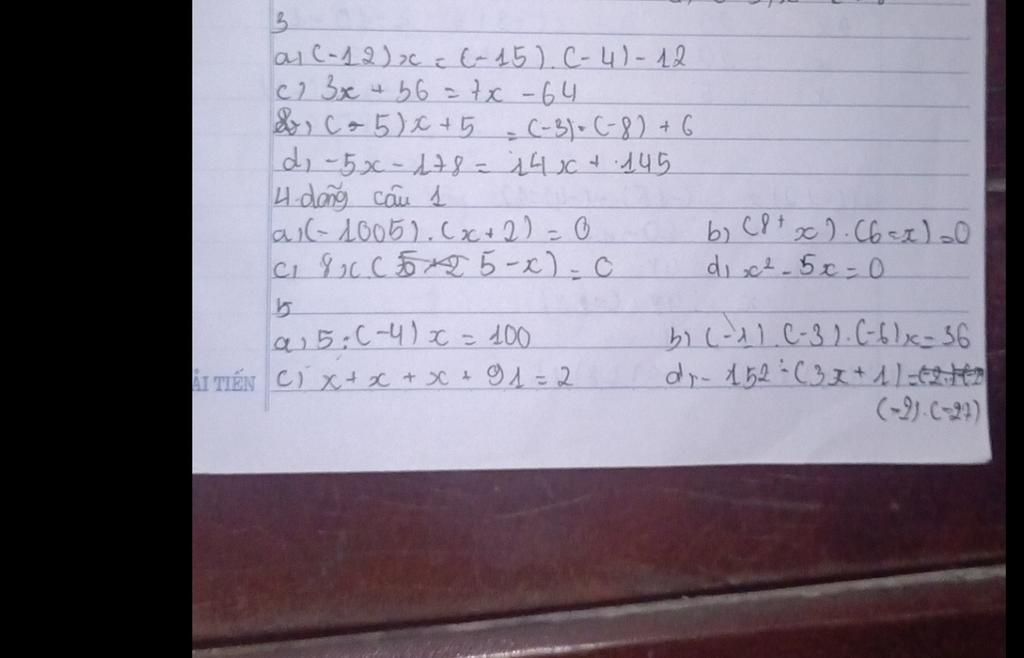 3
a, (-12)x = (-15).(-4)-12
c) 3x + 56 = 7x - 64
b, (-5)x + 5 = (-3).(-8) + 6
d, -5x - 178 = 14x + 145
4. dạng câu 1
a, (-1005).(x+2) = 0 b, (8+x).(6-x)=0
c, 8x(5-x) = 0 d, x² - 5x = 0
5
a, 5.(-4)x = 100 b, (-1).(-3).(-6)x = 36
ẢI TIẾN c, x + x + x + 91 = 2 d, - 152 - (3x + 1) =
(-2).(-27)